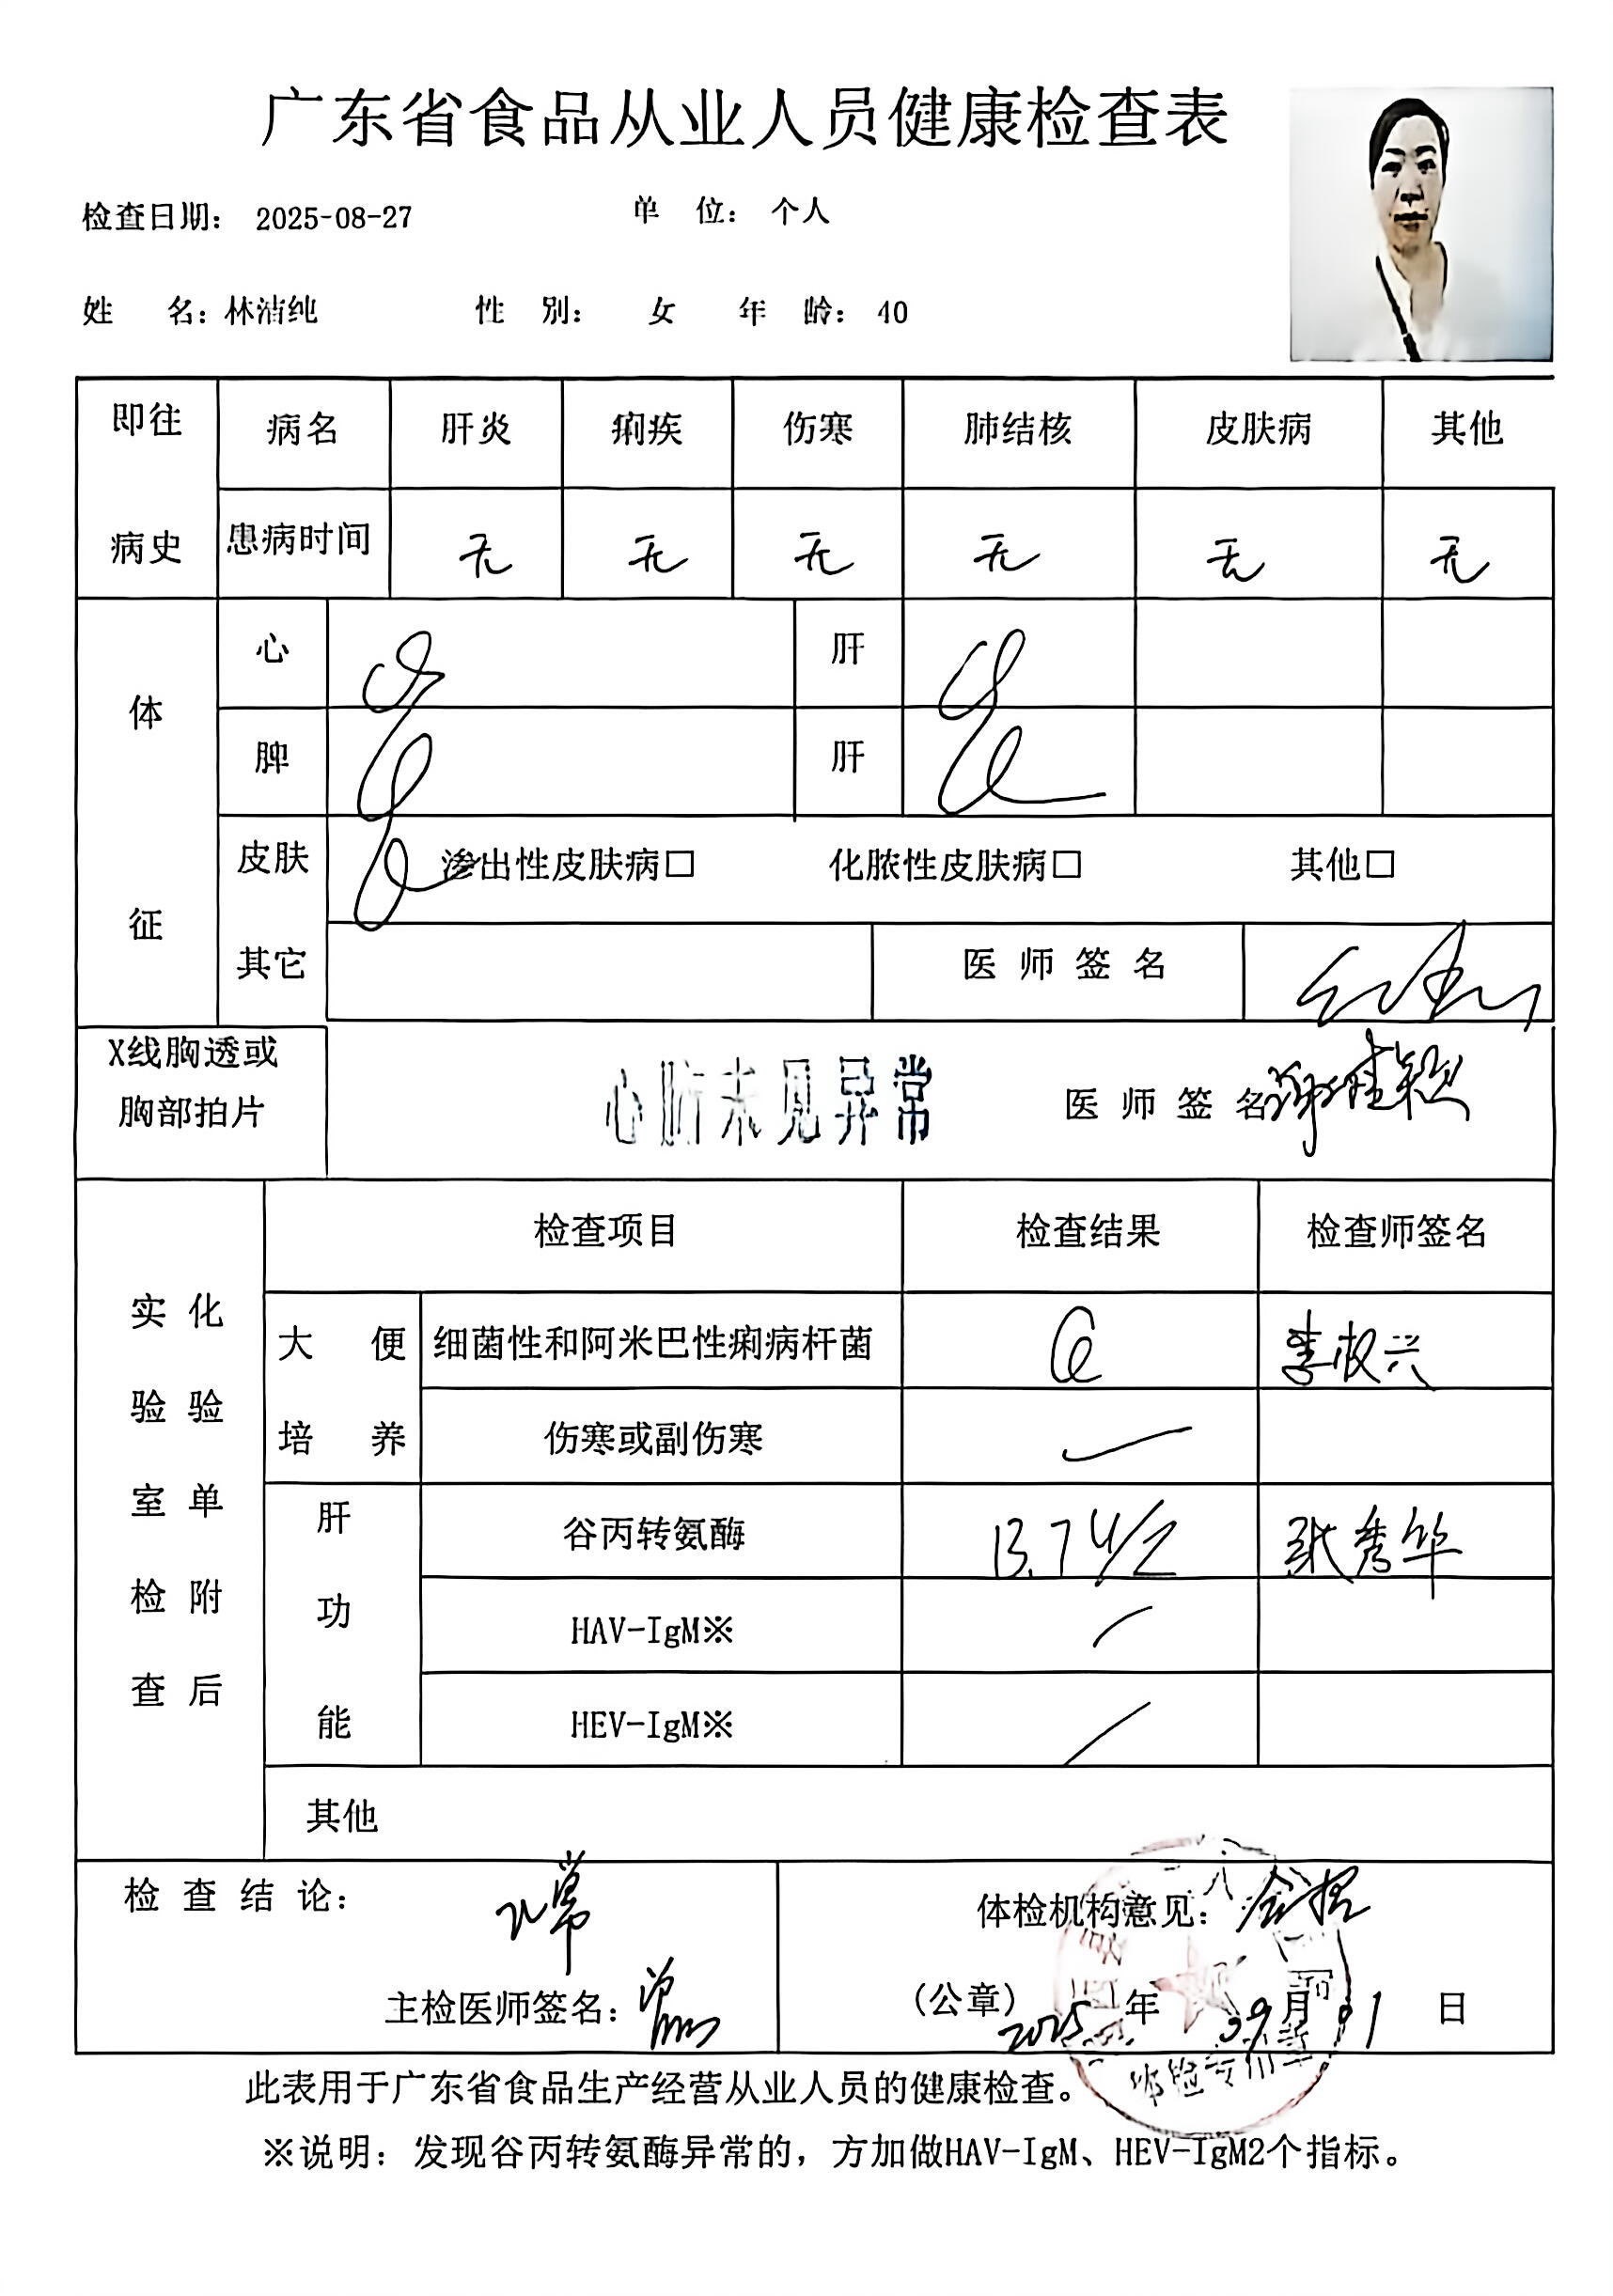 广东省食品从业人员健康检查表
检查日期： 2025-08-27 单 位： 个人
姓 名：林洁纯 性 别： 女 年 龄： 40
即往病史 病名 肝炎 痢疾 伤寒 肺结核 皮肤病 其他
患病时间 无 无 无 无 无 无
体征 心 肝
脾 肝
皮肤 渗出性皮肤病□ 化脓性皮肤病□ 其他□
其它 医 师 签 名
X线胸透或胸部拍片 心肺未见异常 医 师 签 名
实验室检查 化验单附后 检查项目 检查结果 检查师签名
大便培养 细菌性和阿米巴性痢病杆菌 李权兴
伤寒或副伤寒
肝功能 谷丙转氨酶 13.7U/L 张秀华
HAV-IgM※
HEV-IgM※
其他
检 查 结 论： 正常
主检医师签名：
体检机构意见： 合格
(公章) 2025 年 09 月 01 日
此表用于广东省食品生产经营从业人员的健康检查。
※说明：发现谷丙转氨酶异常的，方加做HAV-IgM、HEV-IgM2个指标。